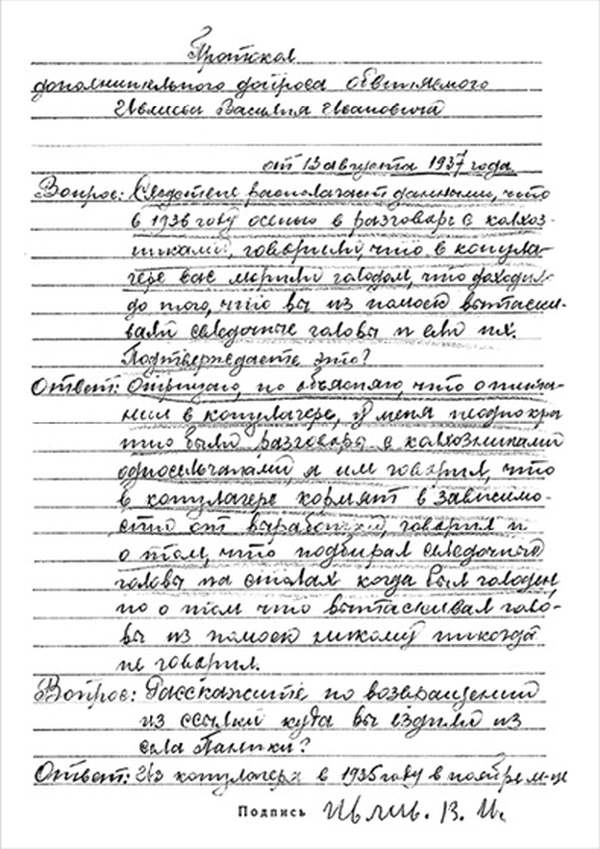 Протокол
дополнительного допроса обвиняемого
Ивлиева Василия Ивановича
от 13 августа 1937 года
Вопрос: Следствие располагает данными, что
в 1936 году осенью в разговоре с колхоз-
никами, говорили, что в концла-
гере вас морили голодом, что доходило
до того, что вы из помоев вытаски-
вали селедочные головы и ели их.
Подтверждаете это?
Ответ: Отрицаю, но объясняю, что о пита-
нии в концлагере, у меня неоднокра
тно были разговоры с колхозниками
односельчанами, я им говорил, что
в концлагере кормят в зависимо-
сти от выработки, говорил и
о том, что подбирал селедочные
головы на столах когда был голоден,
но о том что вытаскивал голо-
вы из помоев никому никогда
не говорил.
Вопрос: Расскажите по возвращении
из ссылки куда вы ездили из
села Паники?
Ответ: Из концлагеря в 1935 году в ноябре м-це
Подпись В. И.